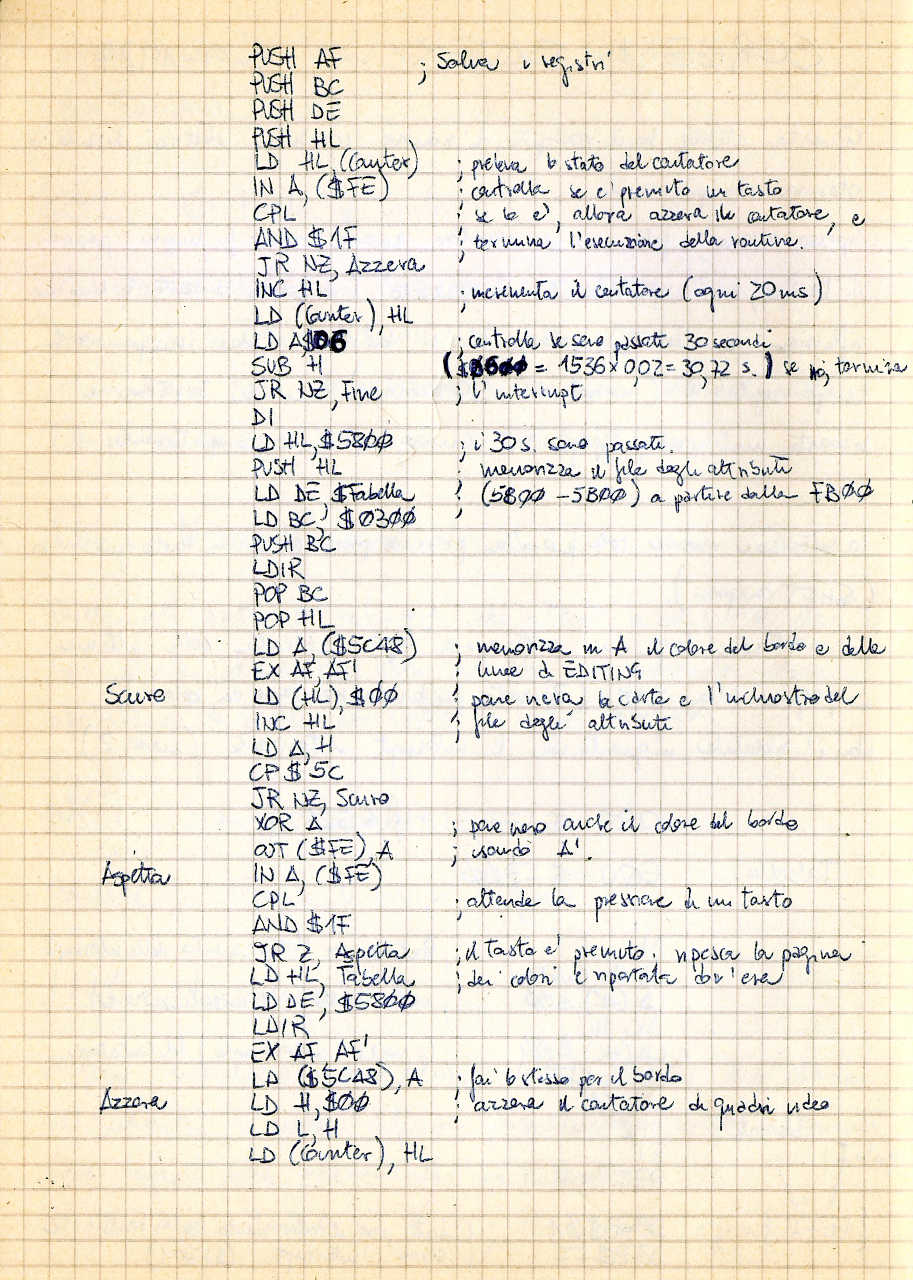 PUSH AF ; Salva i registri
PUSH BC
PUSH DE
PUSH HL
LD HL, (Counter) ; preleva lo stato del contatore
IN A, ($FE) ; controlla se e' premuto un tasto
CPL ; se lo e', allora azzera il contatore, e
AND $1F ; termina l'esecuzione della routine.
JR NZ, Azzera
INC HL ; incrementa il contatore (ogni 20ms)
LD (Counter), HL
LD A,$06 ; controlla se sono passati 30 secondi
SUB H ($0600 = 1536 x 0,02 = 30,72 s.) se no, termina
JR NZ, Fine ; l'interrupt
DI
LD HL, $5800 ; i 30 s. sono passati.
PUSH HL ; memorizza il file degli attributi
LD DE, $Tabella ; (5800 - 5B00) a partire dalla FB00
LD BC, $0300 ;
PUSH BC
LDIR
POP BC
POP HL
LD A, ($5C48) ; memorizza in A il colore del bordo e della
EX AF, AF' ; linee di EDITING
Scuro LD (HL), $00 ; pone nera la carta e l'inchiostro del
INC HL ; file degli attributi
LD A, H
CP $5C
JR NZ, Scuro
XOR A ; pone nero anche il colore del bordo
OUT ($FE), A ; usando A'.
Aspetta IN A, ($FE)
CPL ; attende la pressione di un tasto
AND $1F
JR Z, Aspetta ; il tasto e' premuto. ripesca la pagina
LD HL, Tabella ; dei colori e riportala dov'era
LD DE, $5800
LDIR
EX AF, AF'
LD ($5C48), A ; fai lo stesso per il bordo
Azzera LD H, $00 ; azzera il contatore di quadri video
LD L, H
LD (Counter), HL